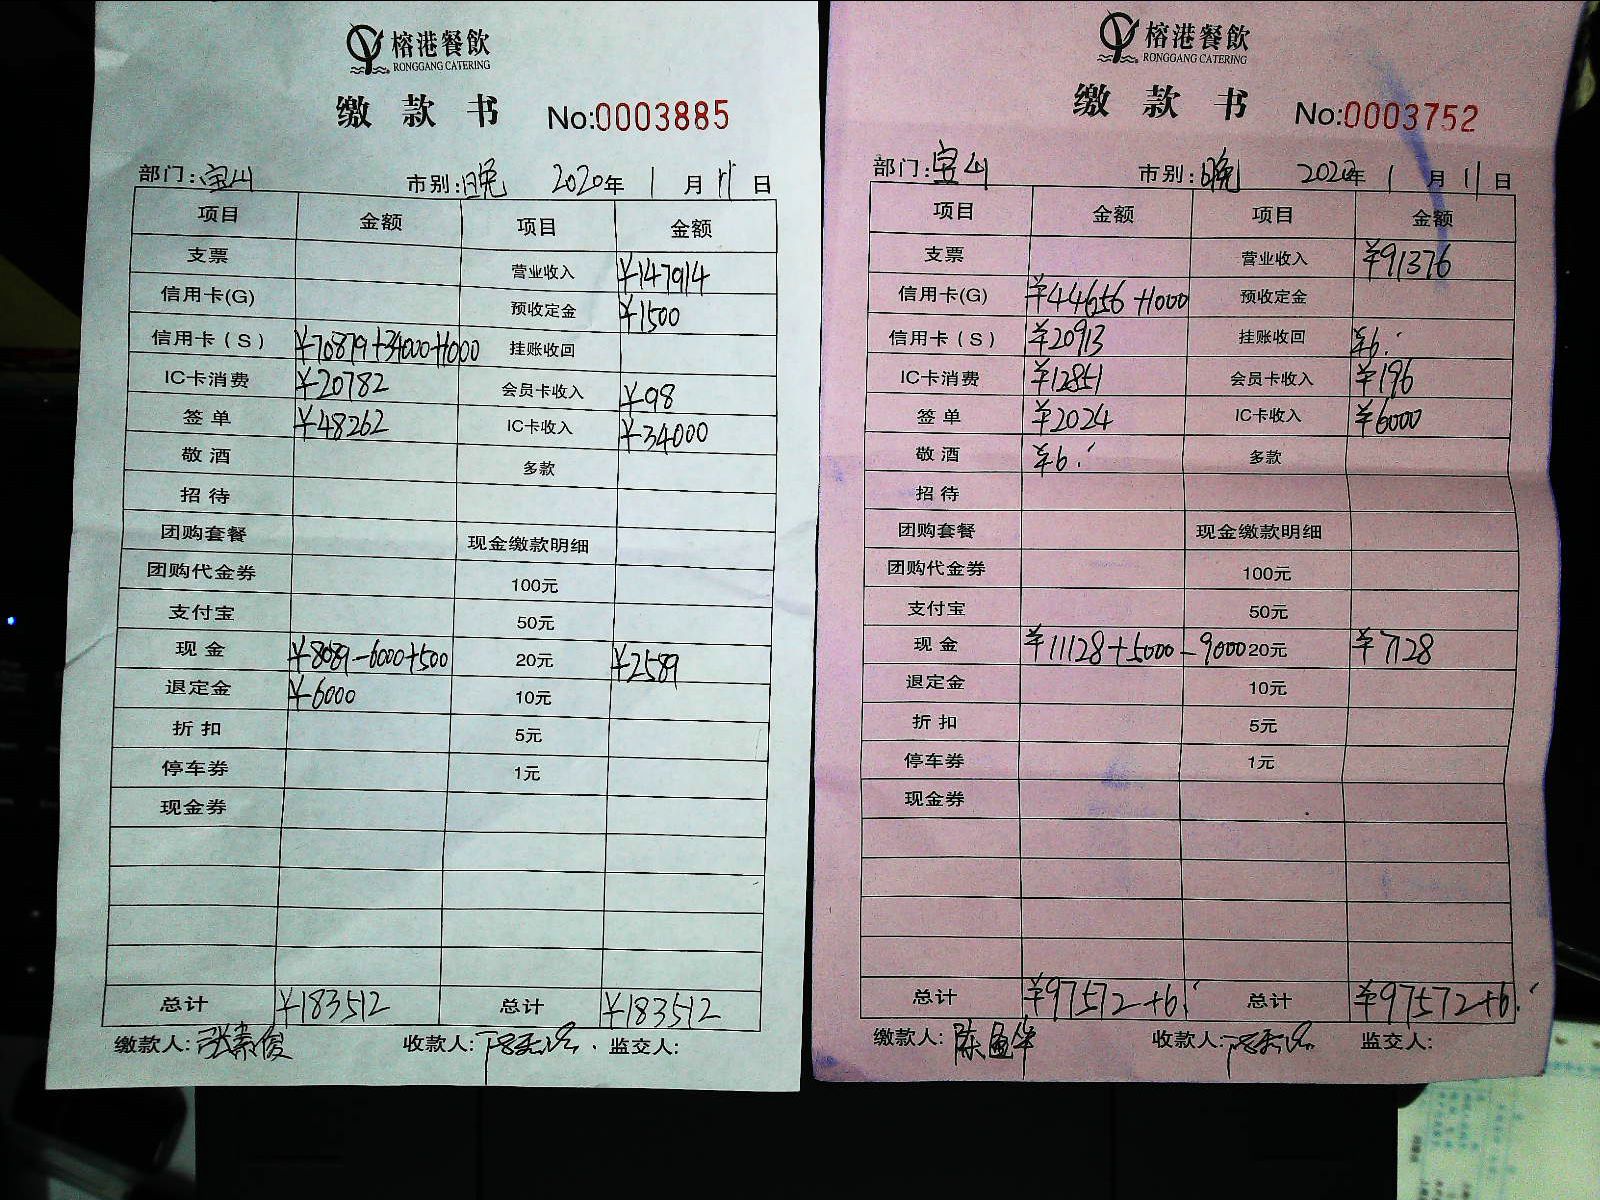 榕港餐飲
RONGGANG CATERING
缴款书 No:0003885
部门:宝山 市别:晚 2020年 1月11日
项目 金额 项目 金额
支票 营业收入 ¥147914
信用卡(G) 预收定金 ¥1500
信用卡(S) ¥70879+34000+1000 挂账收回
IC卡消费 ¥20782 会员卡收入 ¥98
签单 ¥48262 IC卡收入 ¥34000
敬酒 多款
招待
团购套餐 现金缴款明细
团购代金券 100元
支付宝 50元
现金 ¥8089-6000+500 20元 ¥2589
退定金 ¥6000 10元
折扣 5元
停车券 1元
现金券
总计 ¥183512 总计 ¥183512
缴款人:张素俊 收款人: 监交人:
榕港餐飲
RONGGANG CATERING
缴款书 No:0003752
部门:宝山 市别:晚 2020年 1月11日
项目 金额 项目 金额
支票 营业收入 ¥91376
信用卡(G) ¥44656+1000 预收定金
信用卡(S) ¥20913 挂账收回 ¥6.
IC卡消费 ¥12851 会员卡收入 ¥196
签单 ¥2024 IC卡收入 ¥6000
敬酒 ¥6. 多款
招待
团购套餐 现金缴款明细
团购代金券 100元
支付宝 50元
现金 ¥11128+5000-9000 20元 ¥7128
退定金 10元
折扣 5元
停车券 1元
现金券
总计 ¥97572+6. 总计 ¥97572+6.
缴款人:陈 华 收款人: 监交人: